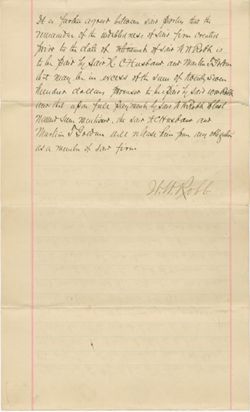 It is further agreed between said parties that the
remainder of the indebtedness of said firm created
prior to the date of retirement of said W W Robb is
to be paid by said H. C Husband and Martin I Gordon
that may be in excess of the sum of
hundred dollars promised to be paid by said
and that upon full payment by said W W Robb of last
named sum mentioned, the said H C Husband and
Martin I Gordon will release him from any obligation
as a member of said firm
W. W. Robb